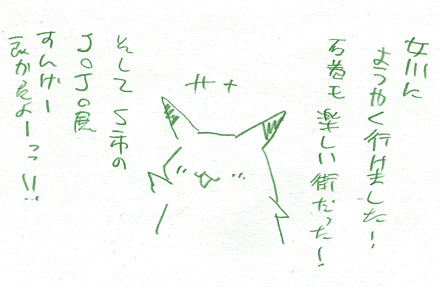 女川に
ようやく行けました!
石巻も楽しい街だった!
そして S市の
JOJO展
すんげー
良かたよーっっ!!